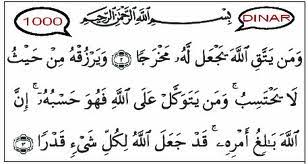 1000 بِسْمِ اللَّهِ الرَّحْمَٰنِ الرَّحِيمِ DINAR
وَمَن يَتَّقِ اللَّهَ يَجْعَل لَّهُ مَخْرَجًا ﴿٢﴾ وَيَرْزُقْهُ مِنْ حَيْثُ
لَا يَحْتَسِبُ ۚ وَمَن يَتَوَكَّلْ عَلَى اللَّهِ فَهُوَ حَسْبُهُ ۚ إِنَّ
اللَّهَ بَالِغُ أَمْرِهِ ۚ قَدْ جَعَلَ اللَّهُ لِكُلِّ شَيْءٍ قَدْرًا ﴿٣﴾